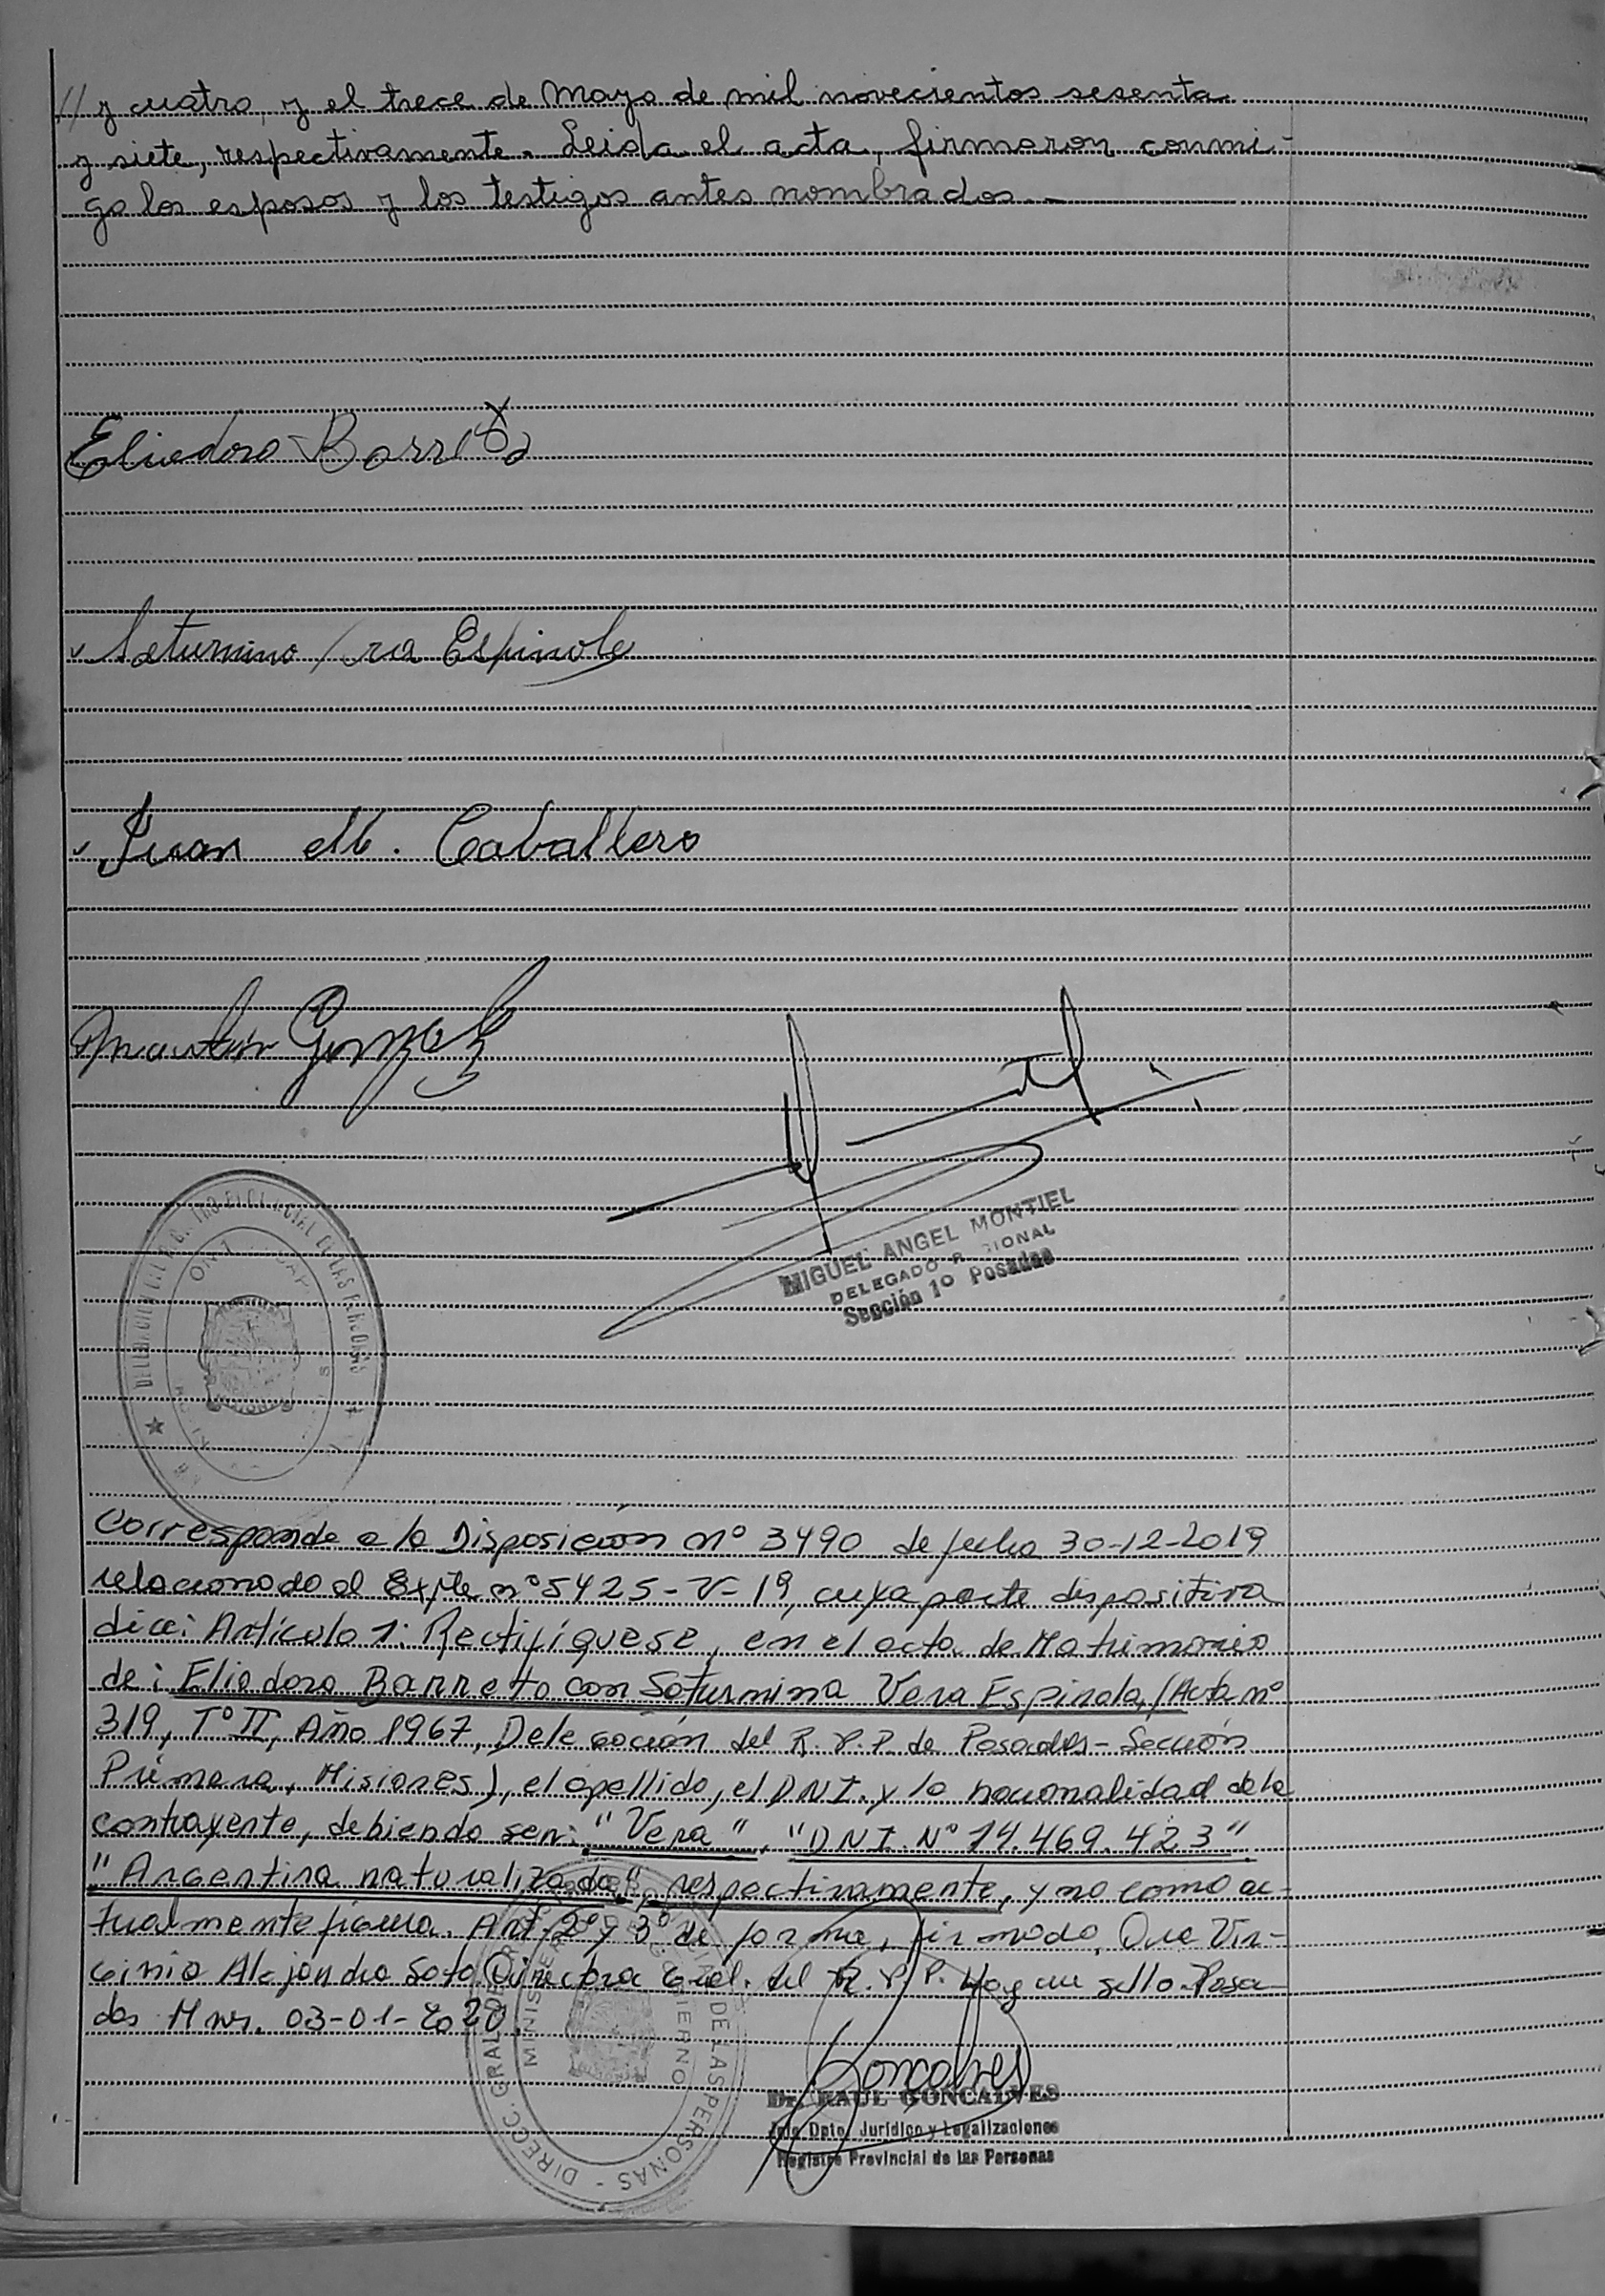 // y cuatro, y el trece de Mayo de mil novecientos sesenta
y siete, respectivamente. Leida el acta, firmaron conmi-
go los esposos y los testigos antes nombrados.-
Eliodoro Barreto
Saturnino Espinole
Juan M. Caballero
Martín Gonzalez
MIGUEL ANGEL MONTIEL
DELEGADO
Sección 1º Posadas
Corresponde a la Disposición nº 3490 de fecha 30-12-2019
relacionado al Expte nº 5425-V-19, cuya parte dispositiva
dice: Artículo 1: Rectifíquese, en el acta de Matrimonio
de: Eliodoro Barreto con Saturnina Vera Espinola, (Acta nº
319, Tº II, Año 1967, Delegación del R.P.P. de Posadas - Sección
Primera, Misiones), el apellido, el DNI. y la nacionalidad de la
contrayente, debiendo ser: "Vera", "DNI. Nº 14.469.423"
"Argentina naturalizada", respectivamente, y no como ac-
tualmente figura. Art. 2º y 3º de forma, firmado, Dra Vir-
ginia Alejandra Soto Directora Gral. del R.P.P. Hay un sello. Posa-
das Mnes. 03-01-2020
DIRECC. GRAL. DE LAS PERSONAS
MINISTERIO DE GOBIERNO
Goncalves
Dr. RAUL GONCALVES
Jefe Dpto. Jurídico y Legalizaciones
Registro Provincial de las Personas